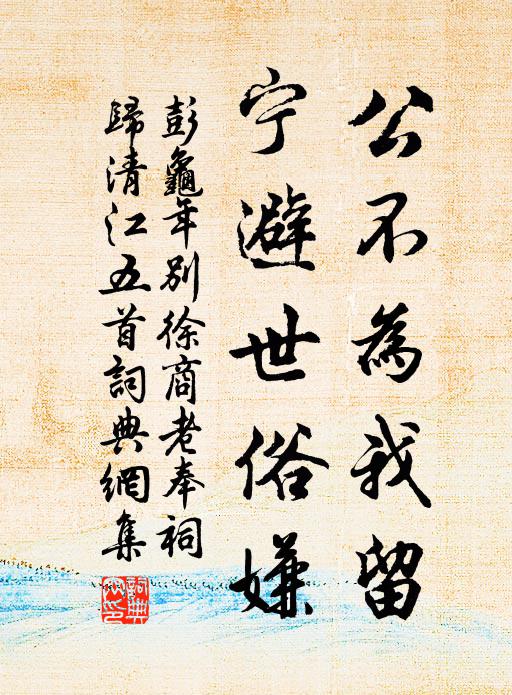 公不為我留
宁避世俗嫌
彭龜年別徐商老奉祠
歸清江五首詞典網集